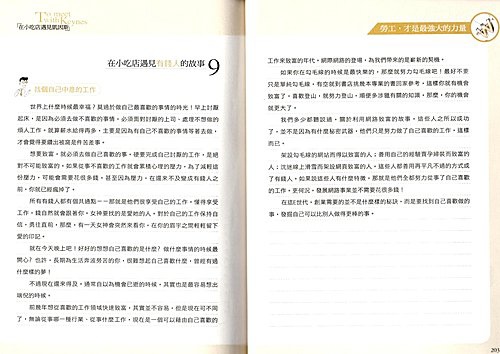 To meet
with Keynes
在小吃店遇見凱因斯
在小吃店遇見有錢人的故事 9
找個自己中意的工作
世界上什麼時候最幸福?莫過於做自己最喜歡的事情的時光!早上討厭
起床,是因為必須去做不喜歡的事情,必須面對討厭的上司、處理不想做的
煩人工作,就算薪水給得再多,主要是因為有自己不喜歡的事情等著去做,
才會覺得要鑽出被窩是件苦差事。
想要致富,就必須去做自己喜歡的事,硬要完成自己討厭的工作,是絕
對不可能致富的。如果從事不喜歡的工作就會累積心理的壓力,為了減輕這
份壓力,可能會需要花很多錢,甚至因為壓力,在還來不及變成有錢人之
前,你就已經瘋掉了。
所有有錢人都有個共通點──那就是他們很享受自己的工作,懂得享受
工作,錢自然就會跟著你,女神要找的是愛她的人。對於自己的工作保持自
信,勇往直前,那麼,有一天女神會突然來看你,在你的眉宇之間輕輕留下
愛的印記。
就在今天晚上吧!好好的想想自己喜歡的是什麼?做什麼事情的時候最
開心?也許,長期為生活奔波勞苦的你,很難想起自己喜歡什麼,曾經有過
什麼樣的夢!
不過現在還來得及。通常自以為機會已逝的時候,其實也是最容易想出
端倪的時候。
前幾年想從喜歡的工作領域快速致富,其實並不容易。但是現在可不同
了,無論從事哪一種行業、從事什麼工作,現在是一個可以藉由自己喜歡的
勞工,才是最強大的力量
工作來致富的年代,網際網路的登場,為我們帶來的是嶄新的契機。
如果你在勾毛線的時候是最快樂的,那麼就努力勾毛線吧!最好不要
只是單純勾毛線,有空就到書店挑幾本專業的圖回家參考,這樣你就有機會
致富了。喜歡登山,就努力登山,順便多涉獵有關的知識,那麼,你的機會
就更大了。
我們多少都聽說過,關於利用網路致富的故事,這些人之所以成功
了,並不是因為有什麼秘密武器,他們只是努力做了自己喜歡的工作,這樣
而已。
架設勾毛線的網站而得以致富的人;善用自己的經驗賣孕婦裝而致富的
人;沈迷線上滑雪而架設網頁致富的人,這些人都善用再平凡不過的方式成
了有錢人,如果說這些人有什麼特徵,那就是他們全都努力從事了自己喜歡
的工作。更何況,發展網路事業並不需要花很多錢!
在這E世代,創業需要的並不是什麼樣的秘訣,而是要找到自己喜歡做的
事,發掘自己可以比別人做得更棒的事。
203